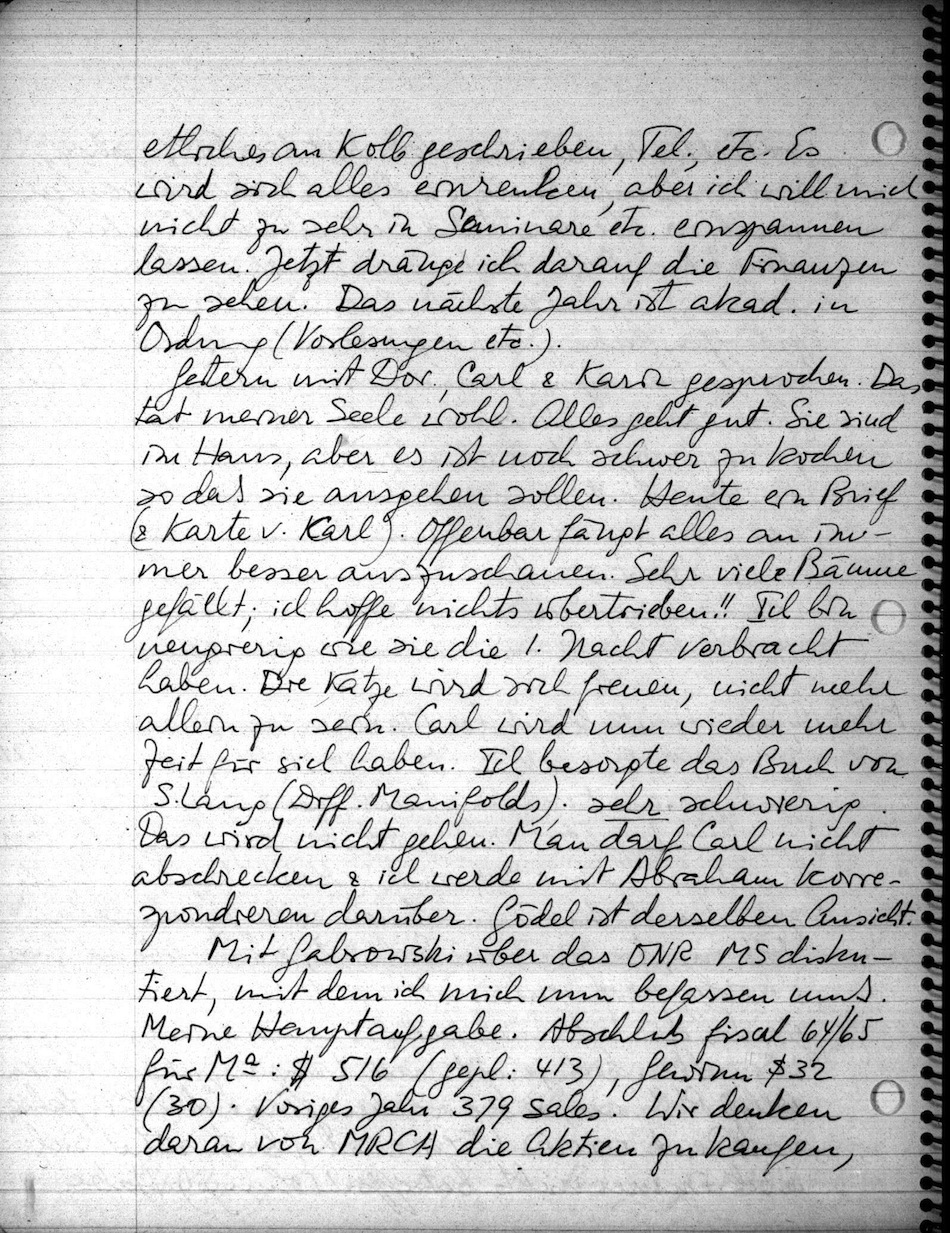 etliches an Kolb geschrieben, Tel., etc. Es
wird sich alles einrenken, aber ich will mich
nicht zu sehr in Seminare etc. einspannen
lassen. Jetzt dränge ich darauf die Finanzen
zu sehen. Das nächste Jahr ist akad. in
Ordnung (Vorlesungen etc.).
Gestern mit Dor, Carl & Karin gesprochen. Das
tat meiner Seele wohl. Alles geht gut. Sie sind
im Haus, aber es ist noch schwer zu kochen
so daß sie ausgehen sollen. Heute ein Brief
(& Karte v. Karl). Offenbar fängt alles an im-
mer besser auszuschauen. Sehr viele Bäume
gefällt; ich hoffe nichts übertrieben!! Ich bin
neugierig wie sie die 1. Nacht verbracht
haben. Die Katze wird sich freuen, nicht mehr
allein zu sein. Carl wird nun wieder mehr
Zeit für sich haben. Ich besorgte das Buch von
S. Lang (Diff. Manifolds). sehr schwierig.
Das wird nicht gehen. Man darf Carl nicht
abschrecken & ich werde mit Abraham korre-
spondieren darüber. Gödel ist derselben Ansicht.
Mit Gabrowski über das ONR MS disku-
tiert, mit dem ich mich nun befassen muß.
Meine Hauptaufgabe. Abschluß fiscal 64/65
für Ma: $ 516 (gepl: 413), Gewinn $32
(30). Voriges Jahr 379 Sales. Wir denken
daran von MRCA die Aktien zu kaufen,